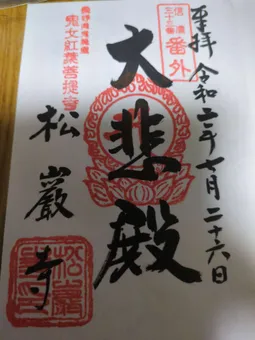 奉拝
令和二年七月二十六日
信濃
三十三番
番外
大悲殿
鬼女紅葉菩提寺
松巖寺